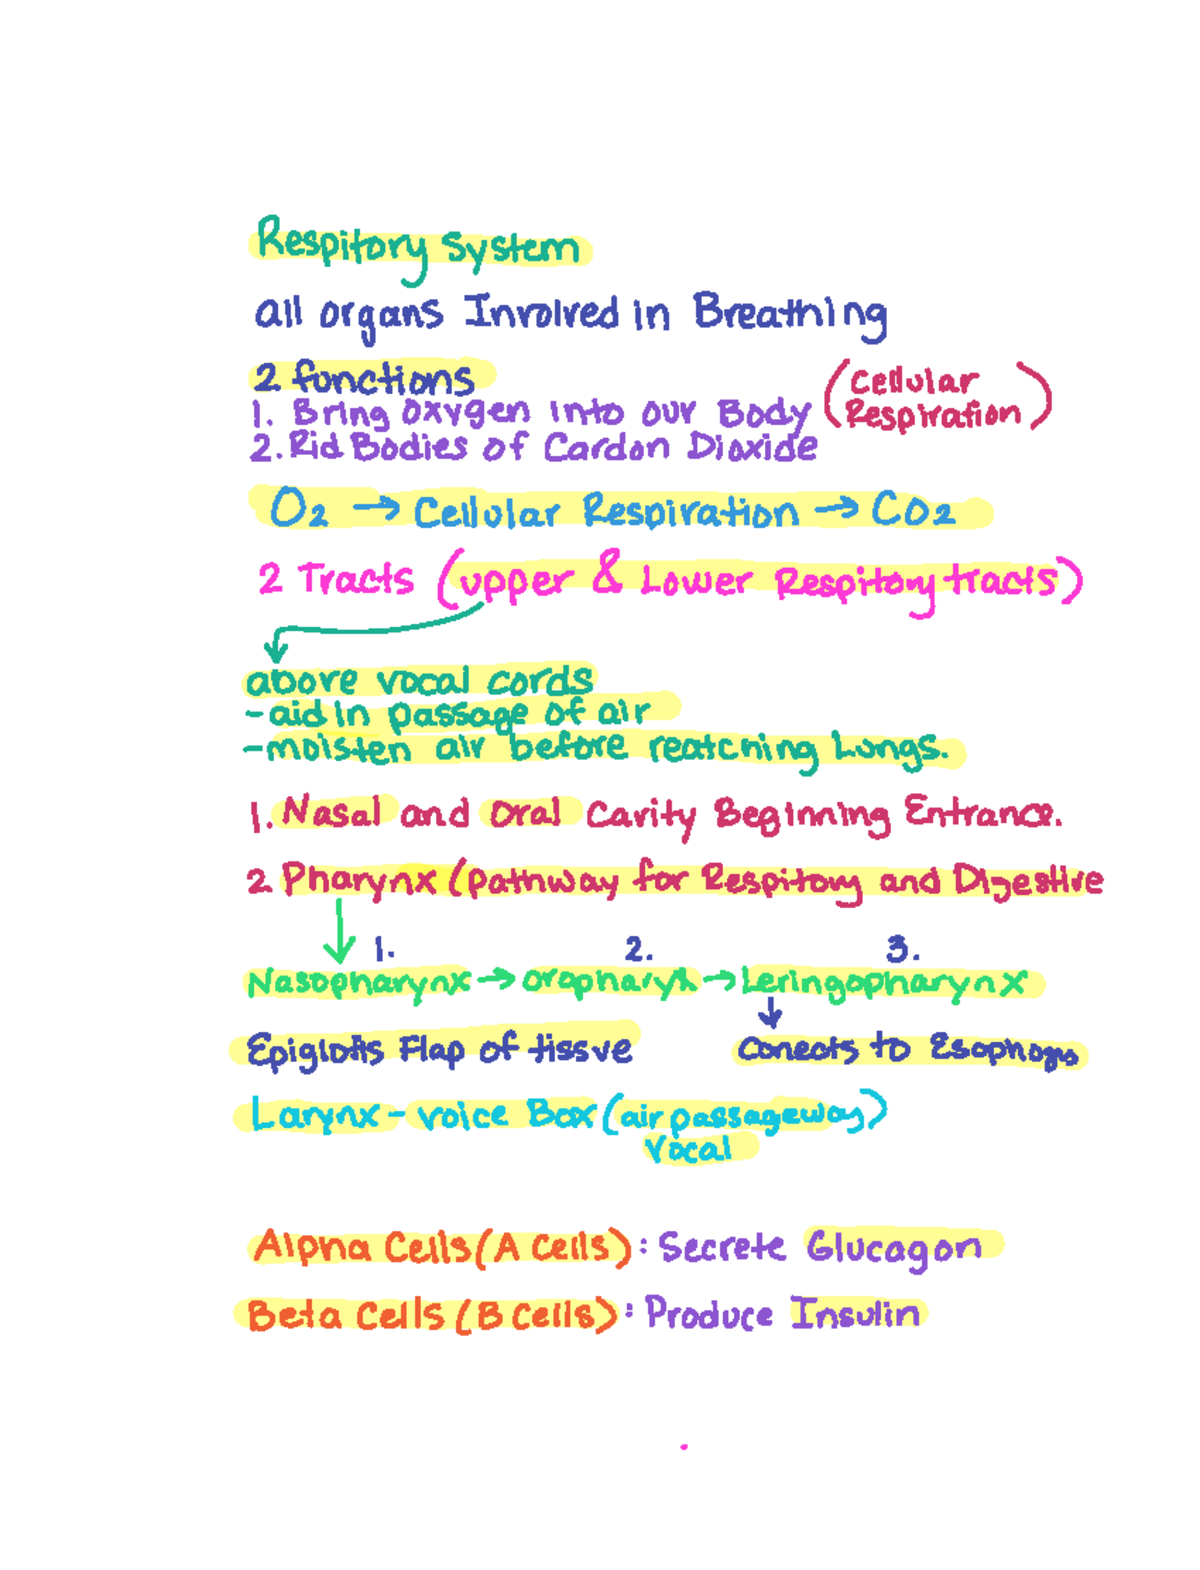 Respitory System
all organs Involved in Breathing
2 functions
1. Bring oxygen into our Body (Cellular Respiration)
2. Rid Bodies of Cardon Dioxide
O2 → Cellular Respiration → CO2
2 Tracts (upper & Lower Respitory tracts)
above vocal cords
-aid in passage of air
-moisten air before reatching Lungs.
1. Nasal and Oral Cavity Beginning Entrance.
2 Pharynx (pathway for Respitory and Digestive
1. 2. 3.
Nasopharynx → oropharyx → Leringopharynx
Epiglottis Flap of tissve conects to Esophogus
Larynx - voice Box (air passageway)
Vocal
Alpha Cells (A cells): Secrete Glucagon
Beta Cells (B cells): Produce Insulin